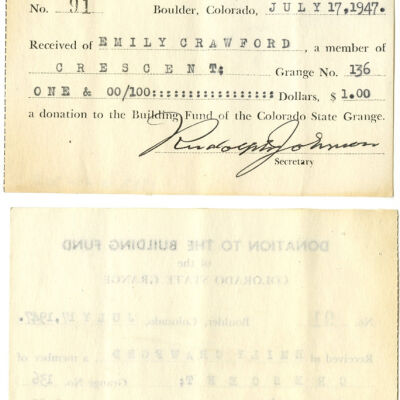 No. 91 Boulder, Colorado, JULY 17, 1947.
Received of EMILY CRAWFORD , a member of
CRESCENT; Grange No. 136
ONE & 00/100:::::::::::::::::: Dollars, $ 1.00
a donation to the Building Fund of the Colorado State Grange.
Rudolph Johnson
Secretary
DONATION TO THE BUILDING FUND
of the
COLORADO STATE GRANGE
No. 91 Boulder, Colorado, JULY 17, 1947.
Received of EMILY CRAWFORD , a member of
CRESCENT; Grange No. 136